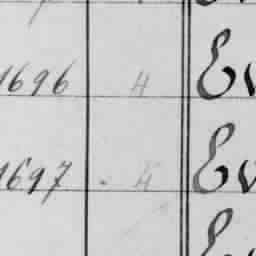 1696 H Ev
1697 H Ev